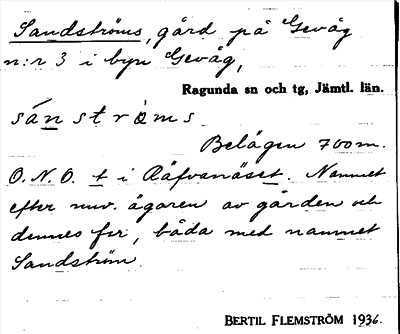 Sandströms, gård på Gevåg
n:r 3 i byn Gevåg,
Ragunda sn och tg, Jämtl. län.
sánströms
Belägen 700 m.
O.N.O. t i Råfvanäset. Namnet
efter nuv. ägaren av gården och
dennes far, båda med namnet
Sandström.
BERTIL FLEMSTRÖM 1936.